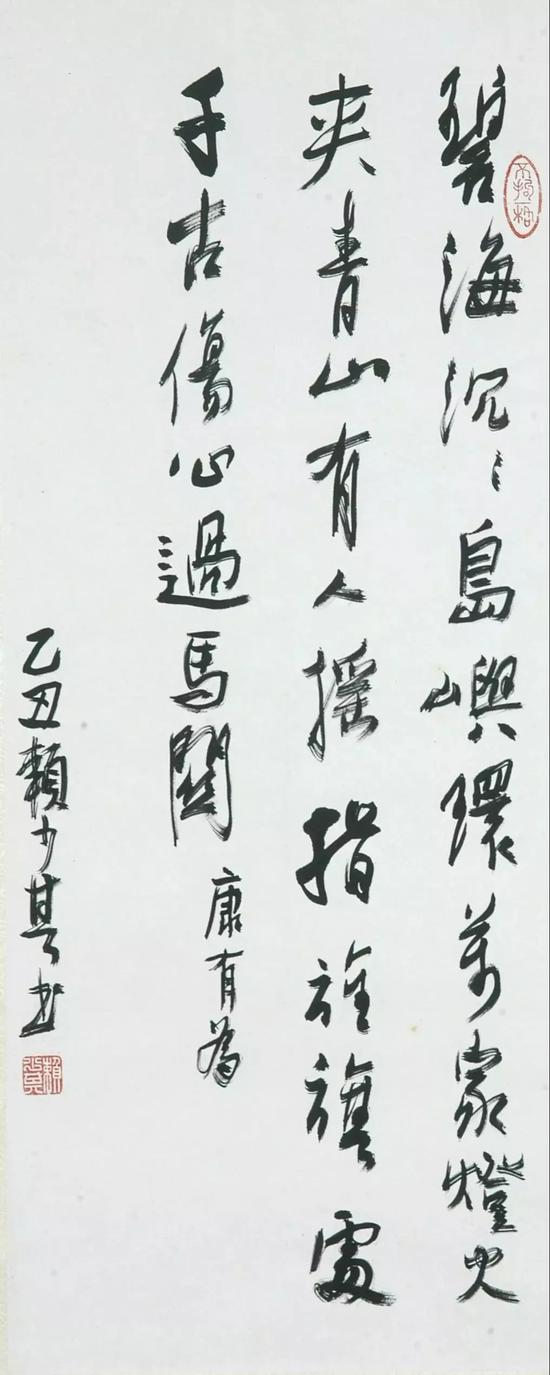 碧海沉〻島嶼環萬家燈火
夾青山有人搖指旌旗處
千古傷心過馬關
康有為
乙丑賴少其書